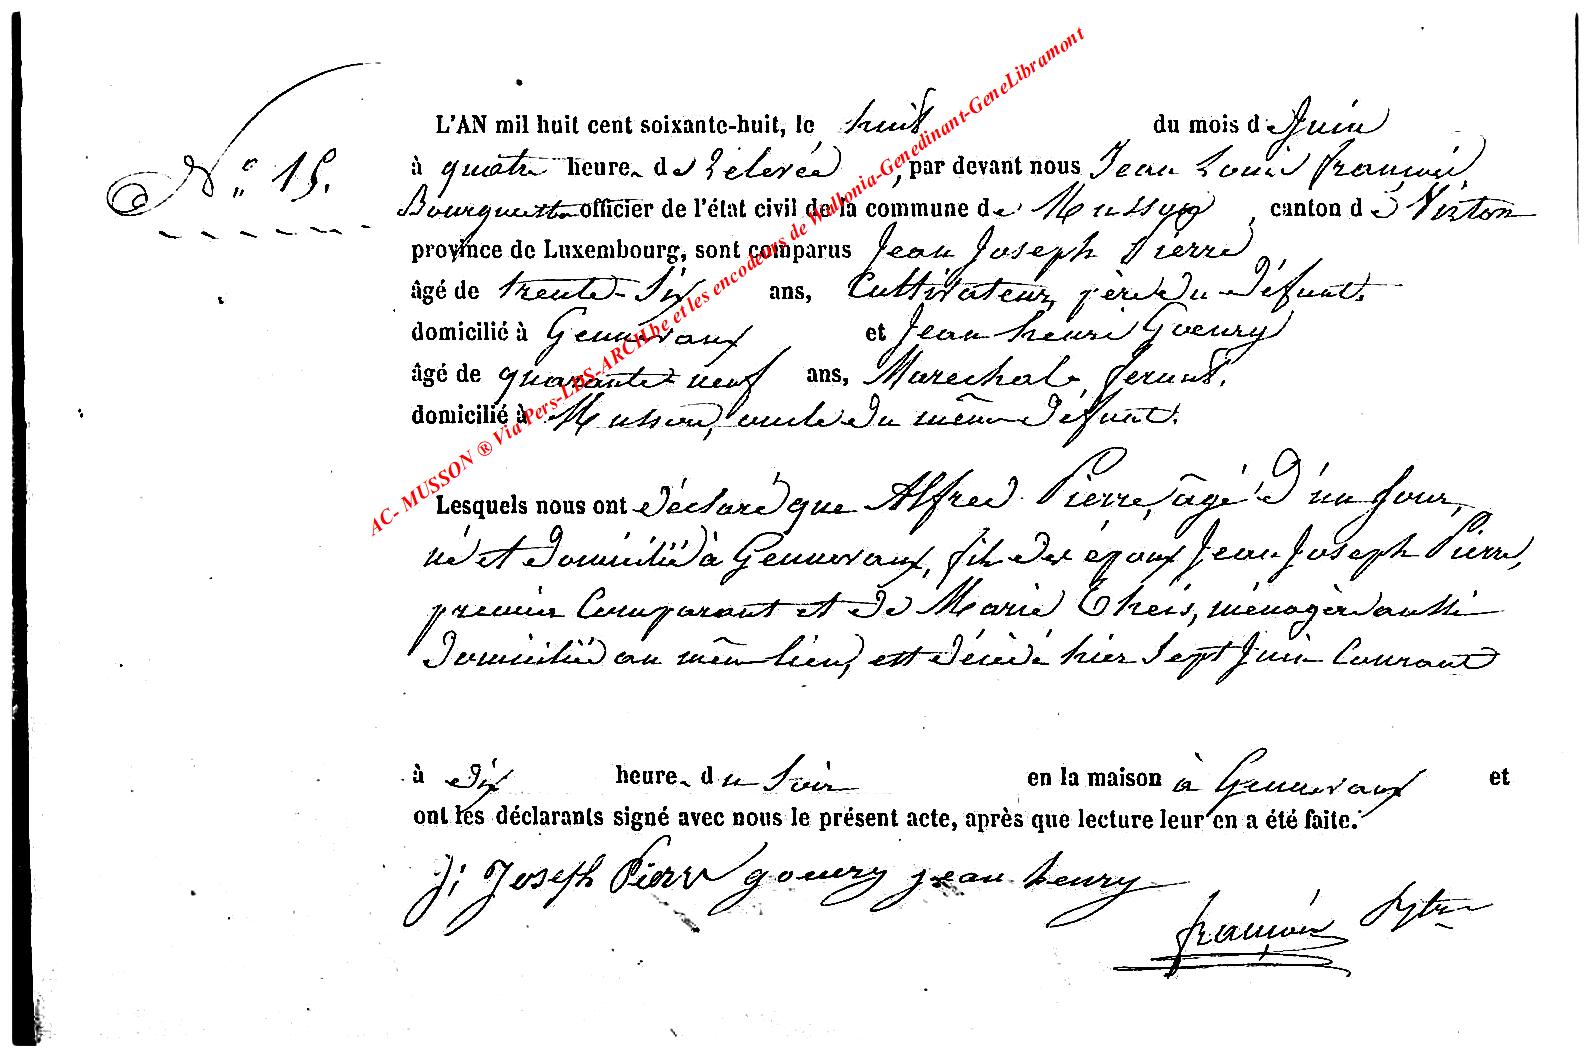 L'AN mil huit cent soixante-huit, le huit du mois de Juin
N° 15. à quatre heures de relevée, par devant nous Jean Louis françois
Bourgmestre officier de l'état civil de la commune de Musson, canton de Virton
province de Luxembourg, sont comparus Jean Joseph Pierre
âgé de trente-six ans, Cultivateur, père du défunt.
domicilié à Gennevaux et Jean henri Goeury
âgé de quarante-neuf ans, Maréchal ferrant.
domicilié à Musson, oncle du même défunt.
Lesquels nous ont déclaré que Alfred Pierre, âgé d'un jour,
né et domicilié à Gennevaux, fils des époux Jean Joseph Pierre,
premier Comparant et de Marie Theis, ménagère aussi
domiciliée au même lieu, est décédé hier sept Juin Courant
à dix heures du soir en la maison à Gennevaux et
ont les déclarants signé avec nous le présent acte, après que lecture leur en a été faite.
J; Joseph Pierre goeury jean henry
françois
AC- MUSSON ® Via Pers-LDS-ARCH.be et les encodeurs de Wallonia-Genedinant-GeneLibramont